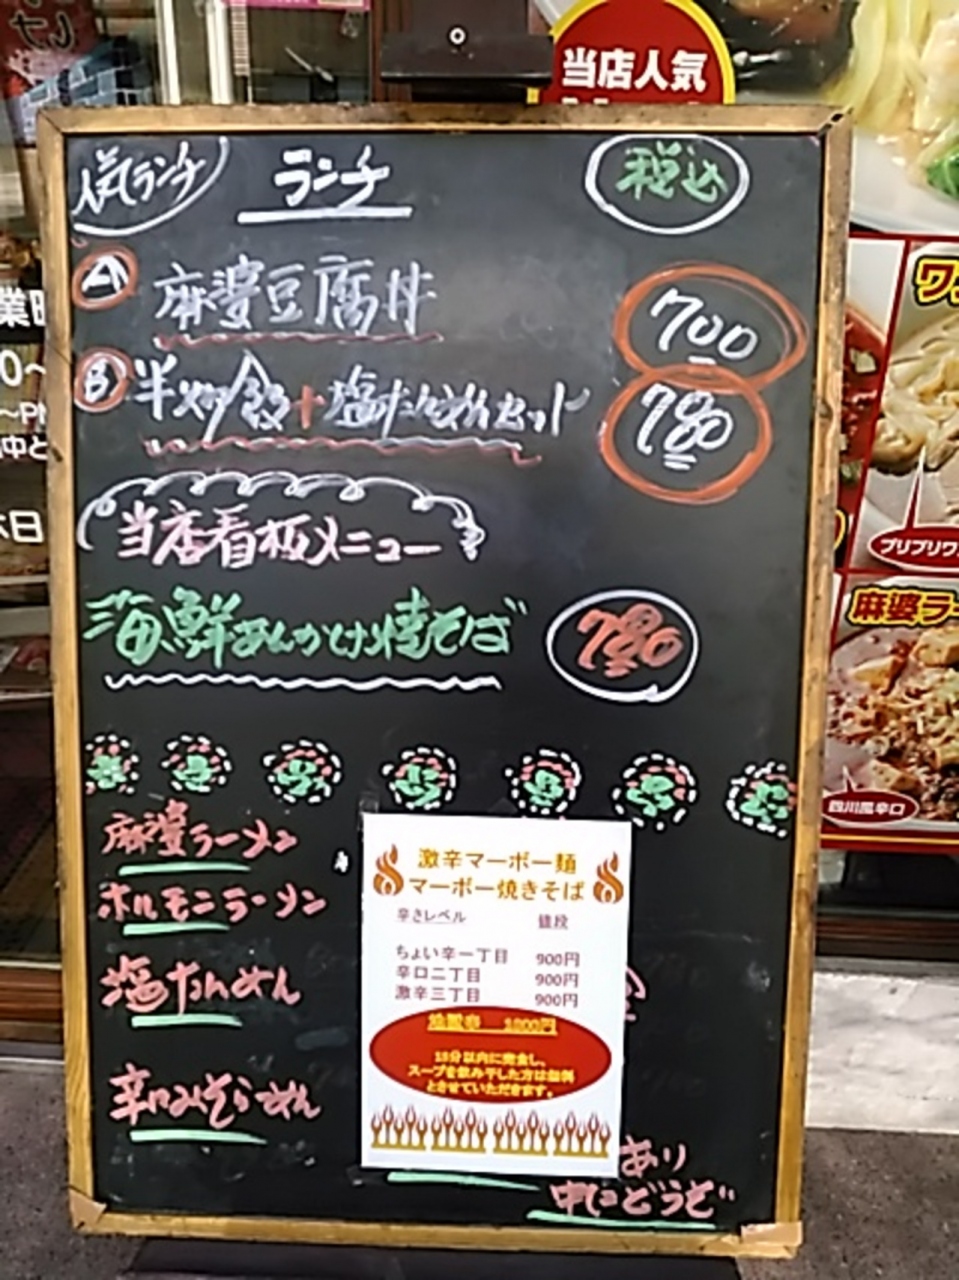 当店人気
人気ランチ
ランチ
税込
A 麻婆豆腐丼 700
B 半炒飯+塩たんめんセット 780
当店看板メニュー
海鮮あんかけ焼そば 780
麻婆ラーメン
ホルモンラーメン
塩たんめん
辛口みそらーめん
激辛マーボー麺
マーボー焼きそば
辛さレベル 値段
ちょい辛一丁目 900円
辛口二丁目 900円
激辛三丁目 900円
1800円
15分以内に完食し、
スープを飲み干した方は無料
とさせていただきます。
あり
中にどうぞ
プリプリワ
麻婆ラー
四川風辛口